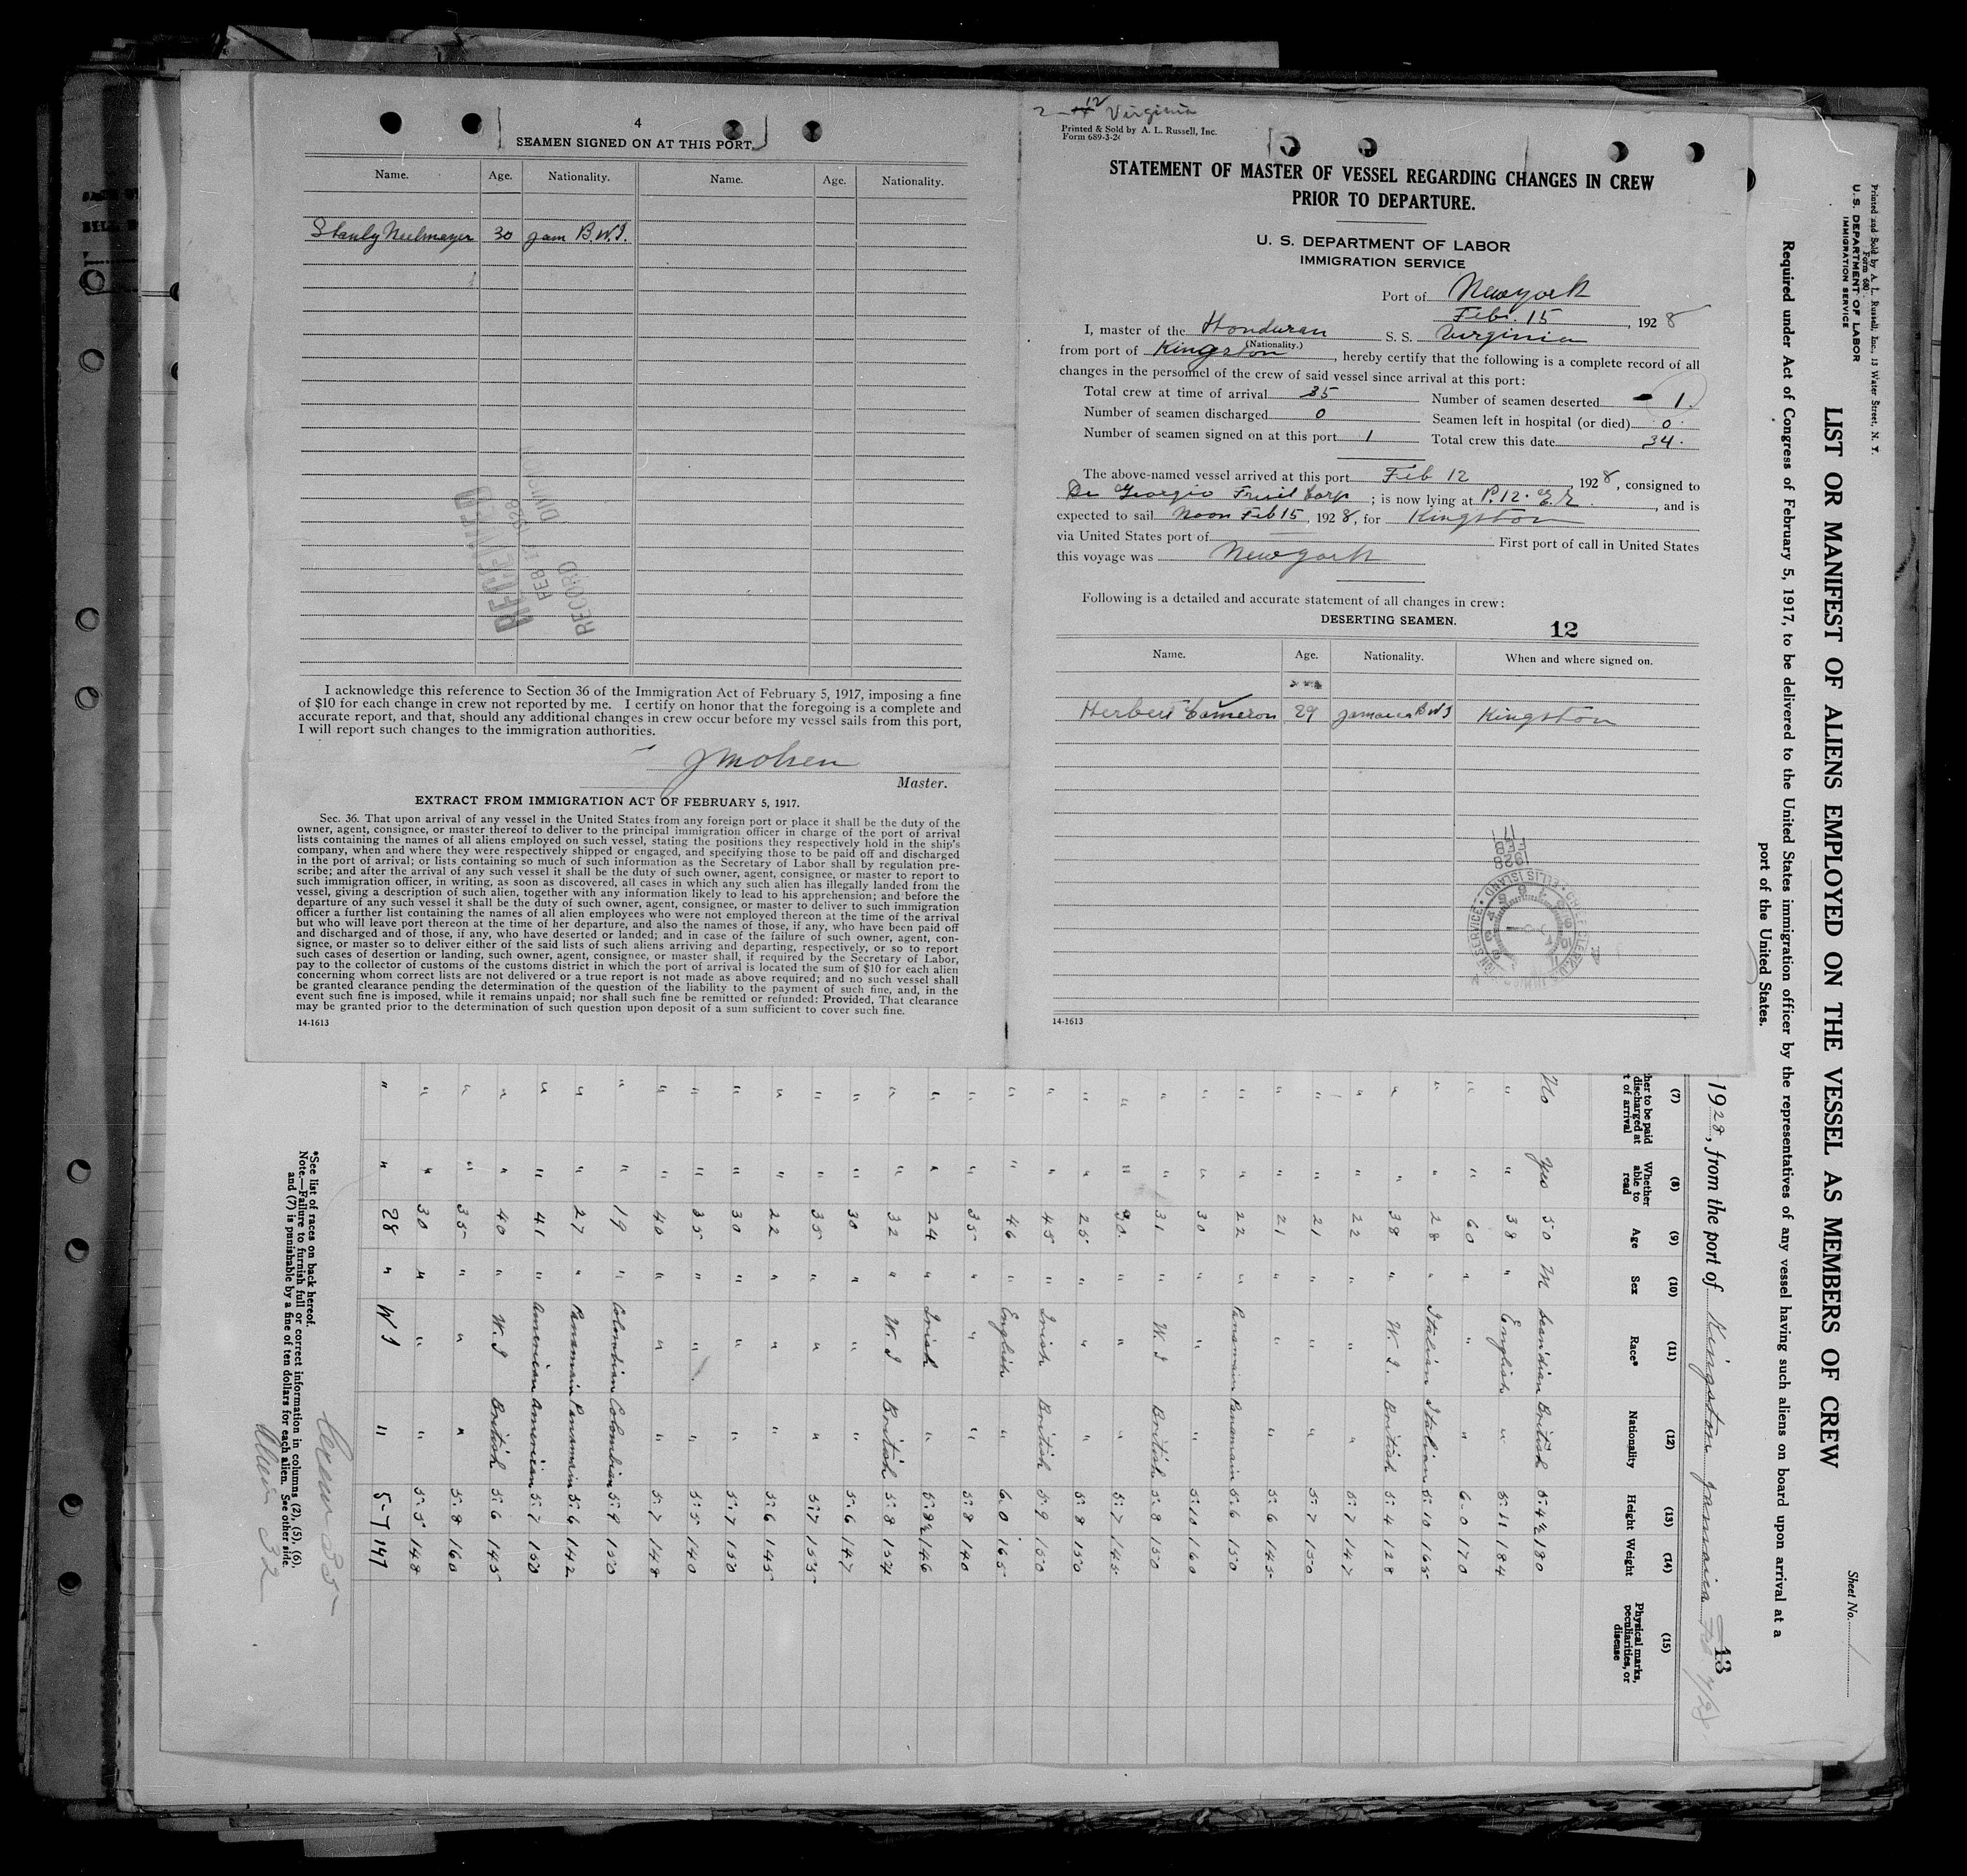 4
SEAMEN SIGNED ON AT THIS PORT.
Name. Age. Nationality. Name. Age. Nationality.
Stanly 30 Jam B.W.I.
RECEIVED
FEB 1928
RECORD DIVISION
I acknowledge this reference to Section 36 of the Immigration Act of February 5, 1917, imposing a fine
of $10 for each change in crew not reported by me. I certify on honor that the foregoing is a complete and
accurate report, and that, should any additional changes in crew occur before my vessel sails from this port,
I will report such changes to the immigration authorities.
Master.
EXTRACT FROM IMMIGRATION ACT OF FEBRUARY 5, 1917.
Sec. 36. That upon arrival of any vessel in the United States from any foreign port or place it shall be the duty of the
owner, agent, consignee, or master thereof to deliver to the principal immigration officer in charge of the port of arrival
lists containing the names of all aliens employed on such vessel, stating the positions they respectively hold in the ship's
company, when and where they were respectively shipped or engaged, and specifying those to be paid off and discharged
in the port of arrival; or lists containing so much of such information as the Secretary of Labor shall by regulation pre-
scribe; and after the arrival of any such vessel it shall be the duty of such owner, agent, consignee, or master to report to
such immigration officer, in writing, as soon as discovered, all cases in which any such alien has illegally landed from the
vessel, giving a description of such alien, together with any information likely to lead to his apprehension; and before the
departure of any such vessel it shall be the duty of such owner, agent, consignee, or master to deliver to such immigration
officer a further list containing the names of all alien employees who were not employed thereon at the time of the arrival
but who will leave port thereon at the time of her departure, and also the names of those, if any, who have been paid off
and discharged and of those, if any, who have deserted or landed; and in case of the failure of such owner, agent, con-
signee, or master so to deliver either of the said lists of such aliens arriving and departing, respectively, or so to report
such cases of desertion or landing, such owner, agent, consignee, or master shall, if required by the Secretary of Labor,
pay to the collector of customs of the customs district in which the port of arrival is located the sum of $10 for each alien
concerning whom correct lists are not delivered or a true report is not made as above required; and no such vessel shall
be granted clearance pending the determination of the question of the liability to the payment of such fine, and, in the
event such fine is imposed, while it remains unpaid; nor shall such fine be remitted or refunded: Provided, That clearance
may be granted prior to the determination of such question upon deposit of a sum sufficient to cover such fine.
14-1613
2 - 12 Virginia
Printed & Sold by A. L. Russell, Inc.
Form 689-3-2
STATEMENT OF MASTER OF VESSEL REGARDING CHANGES IN CREW
PRIOR TO DEPARTURE.
U. S. DEPARTMENT OF LABOR
IMMIGRATION SERVICE
Port of New york
Feb. 15, 1928
I, master of the Honduran S. S. Virginia
(Nationality.)
from port of Kingston, hereby certify that the following is a complete record of all
changes in the personnel of the crew of said vessel since arrival at this port:
Total crew at time of arrival 35 Number of seamen deserted 1.
Number of seamen discharged 0 Seamen left in hospital (or died) 0
Number of seamen signed on at this port 1 Total crew this date 34.
The above-named vessel arrived at this port Feb 12 1928, consigned to
Di Georgio Fruit Corp; is now lying at P.12. E.R., and is
expected to sail Noon Feb 15, 1928, for Kingston
via United States port of First port of call in United States
this voyage was New york
Following is a detailed and accurate statement of all changes in crew:
DESERTING SEAMEN.
12
Name. Age. Nationality. When and where signed on.
Herbert Cameron 29 Jamaica BWI Kingston
14-1613
Printed and Sold by A. L. Russell, Inc., 13 Water Street, N. Y.
Form 680
U. S. DEPARTMENT OF LABOR
IMMIGRATION SERVICE
Sheet No. 1
LIST OR MANIFEST OF ALIENS EMPLOYED ON THE VESSEL AS MEMBERS OF CREW
Required under Act of Congress of February 5, 1917, to be delivered to the United States immigration officer by the representatives of any vessel having such aliens on board upon arrival at a
port of the United States.
13
1928, from the port of Kingston Jamaica
(7) (8) (9) (10) (11) (12) (13) (14) (15)
her to be paid discharged at t of arrival Whether able to read Age Sex Race* Nationality Height Weight Physical marks, peculiarities, or disease
No Yes 50 M British 5.4½ 180
" " 38 " English " 5.11 184
" " 60 " " " 6-0 170
" " 28 " Italian Italian 5.10 165
" " 38 " W.I. British 5.4 128
" " 22 " " " 5.7 147
" " 21 " " " 5.7 150
" " 21 " " " 5.6 145
" " 22 " Panamain Panamain 5.6 150
" " 30 " " " 5.10 160
" " 31 " W.I British 5.8 150
" " 30 " " " 5.7 145
" " 25 " " " 5.8 150
" " 45 " Irish British 5.9 150
" " 46 " English " 6.0 165
" " 35 " " " 5.8 140
" " 24 " Irish " 5.8½ 146
" " 32 " W.I British 5.8 154
" " 30 " " " 5.6 147
" " 35 " " " 5.7 155
" " 22 " " " 5.6 145
" " 30 " " " 5.7 150
" " 35 " " " 5.5 140
" " 40 " " " 5.7 148
" " 19 " Colombian Colombian 5.9 150
" " 27 " Panamain Panamain 5.6 142
" " 41 " American American 5.7 150
" " 40 " W.I British 5.6 145
" " 35 " " " 5.8 160
" " 30 " " " 5.5 148
" " 28 " W I " 5-7 147
Crew 35
*See list of races on back hereof.
Note.—Failure to furnish full or correct information in columns (2), (5), (6),
and (7) is punishable by a fine of ten dollars for each alien. See other side.
32